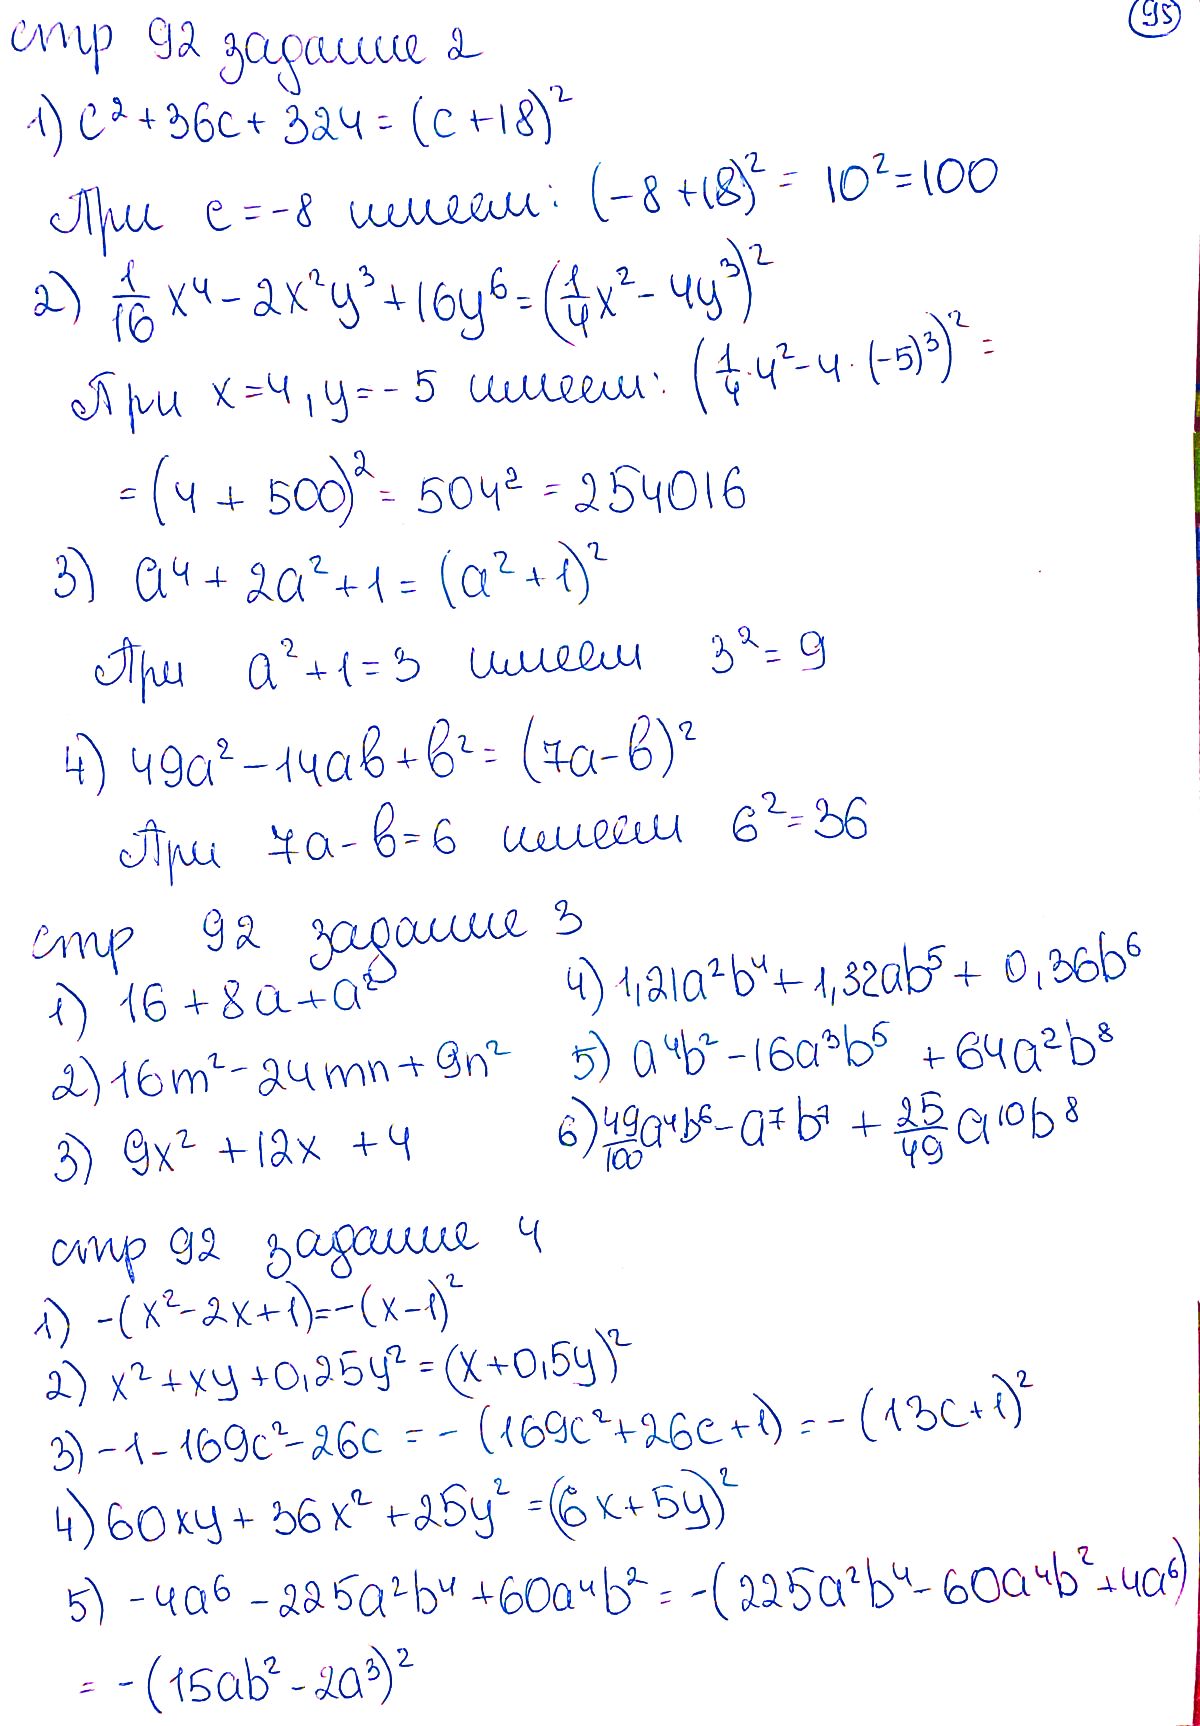 95
стр 92 задание 2
1) c² + 36c + 324 = (c + 18)²
При c = -8 имеем: (-8 + 18)² = 10² = 100
2) 1/16 x⁴ - 2x²y³ + 16y⁶ = (1/4 x² - 4y³)²
При x = 4, y = -5 имеем: (1/4 · 4² - 4 · (-5)³)² =
= (4 + 500)² = 504² = 254016
3) a⁴ + 2a² + 1 = (a² + 1)²
При a² + 1 = 3 имеем 3² = 9
4) 49a² - 14ab + b² = (7a - b)²
При 7a - b = 6 имеем 6² = 36
стр 92 задание 3
1) 16 + 8a + a²
2) 16m² - 24mn + 9n²
3) 9x² + 12x + 4
4) 1,21a²b⁴ + 1,32ab⁵ + 0,36b⁶
5) a⁴b² - 16a³b⁵ + 64a²b⁸
6) 49/100 a⁴b⁶ - a⁷b⁷ + 25/49 a¹⁰b⁸
стр 92 задание 4
1) -(x² - 2x + 1) = -(x - 1)²
2) x² + xy + 0,25y² = (x + 0,5y)²
3) -1 - 169c² - 26c = -(169c² + 26c + 1) = -(13c + 1)²
4) 60xy + 36x² + 25y² = (6x + 5y)²
5) -4a⁶ - 225a²b⁴ + 60a⁴b² = -(225a²b⁴ - 60a⁴b² + 4a⁶)
= -(15ab² - 2a³)²